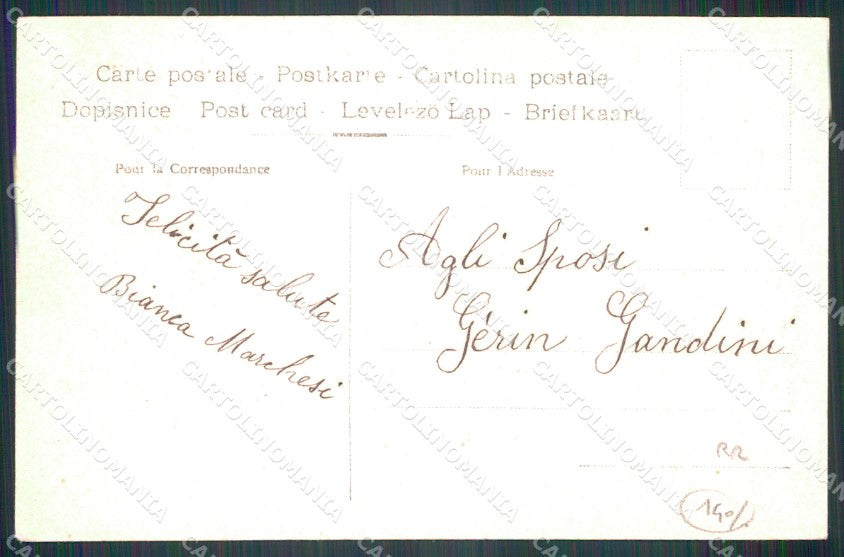 Carte postale - Postkarte - Cartolina postale
Dopisnice Post card - Levelező Lap - Briefkaart
Pour la Correspondance
Pour l'Adresse
Felicità salute
Bianca Marchesi
Agli Sposi
Gérin Gandini
RR
CARTOLINOMANIA